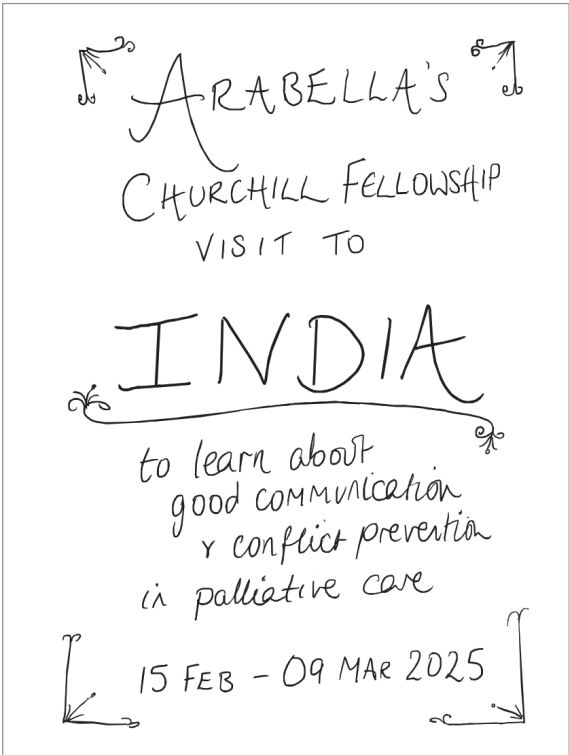 ARABELLA'S
CHURCHILL FELLOWSHIP
VISIT TO
INDIA
to learn about
good communication
& conflict prevention
in palliative care
15 FEB - 09 MAR 2025